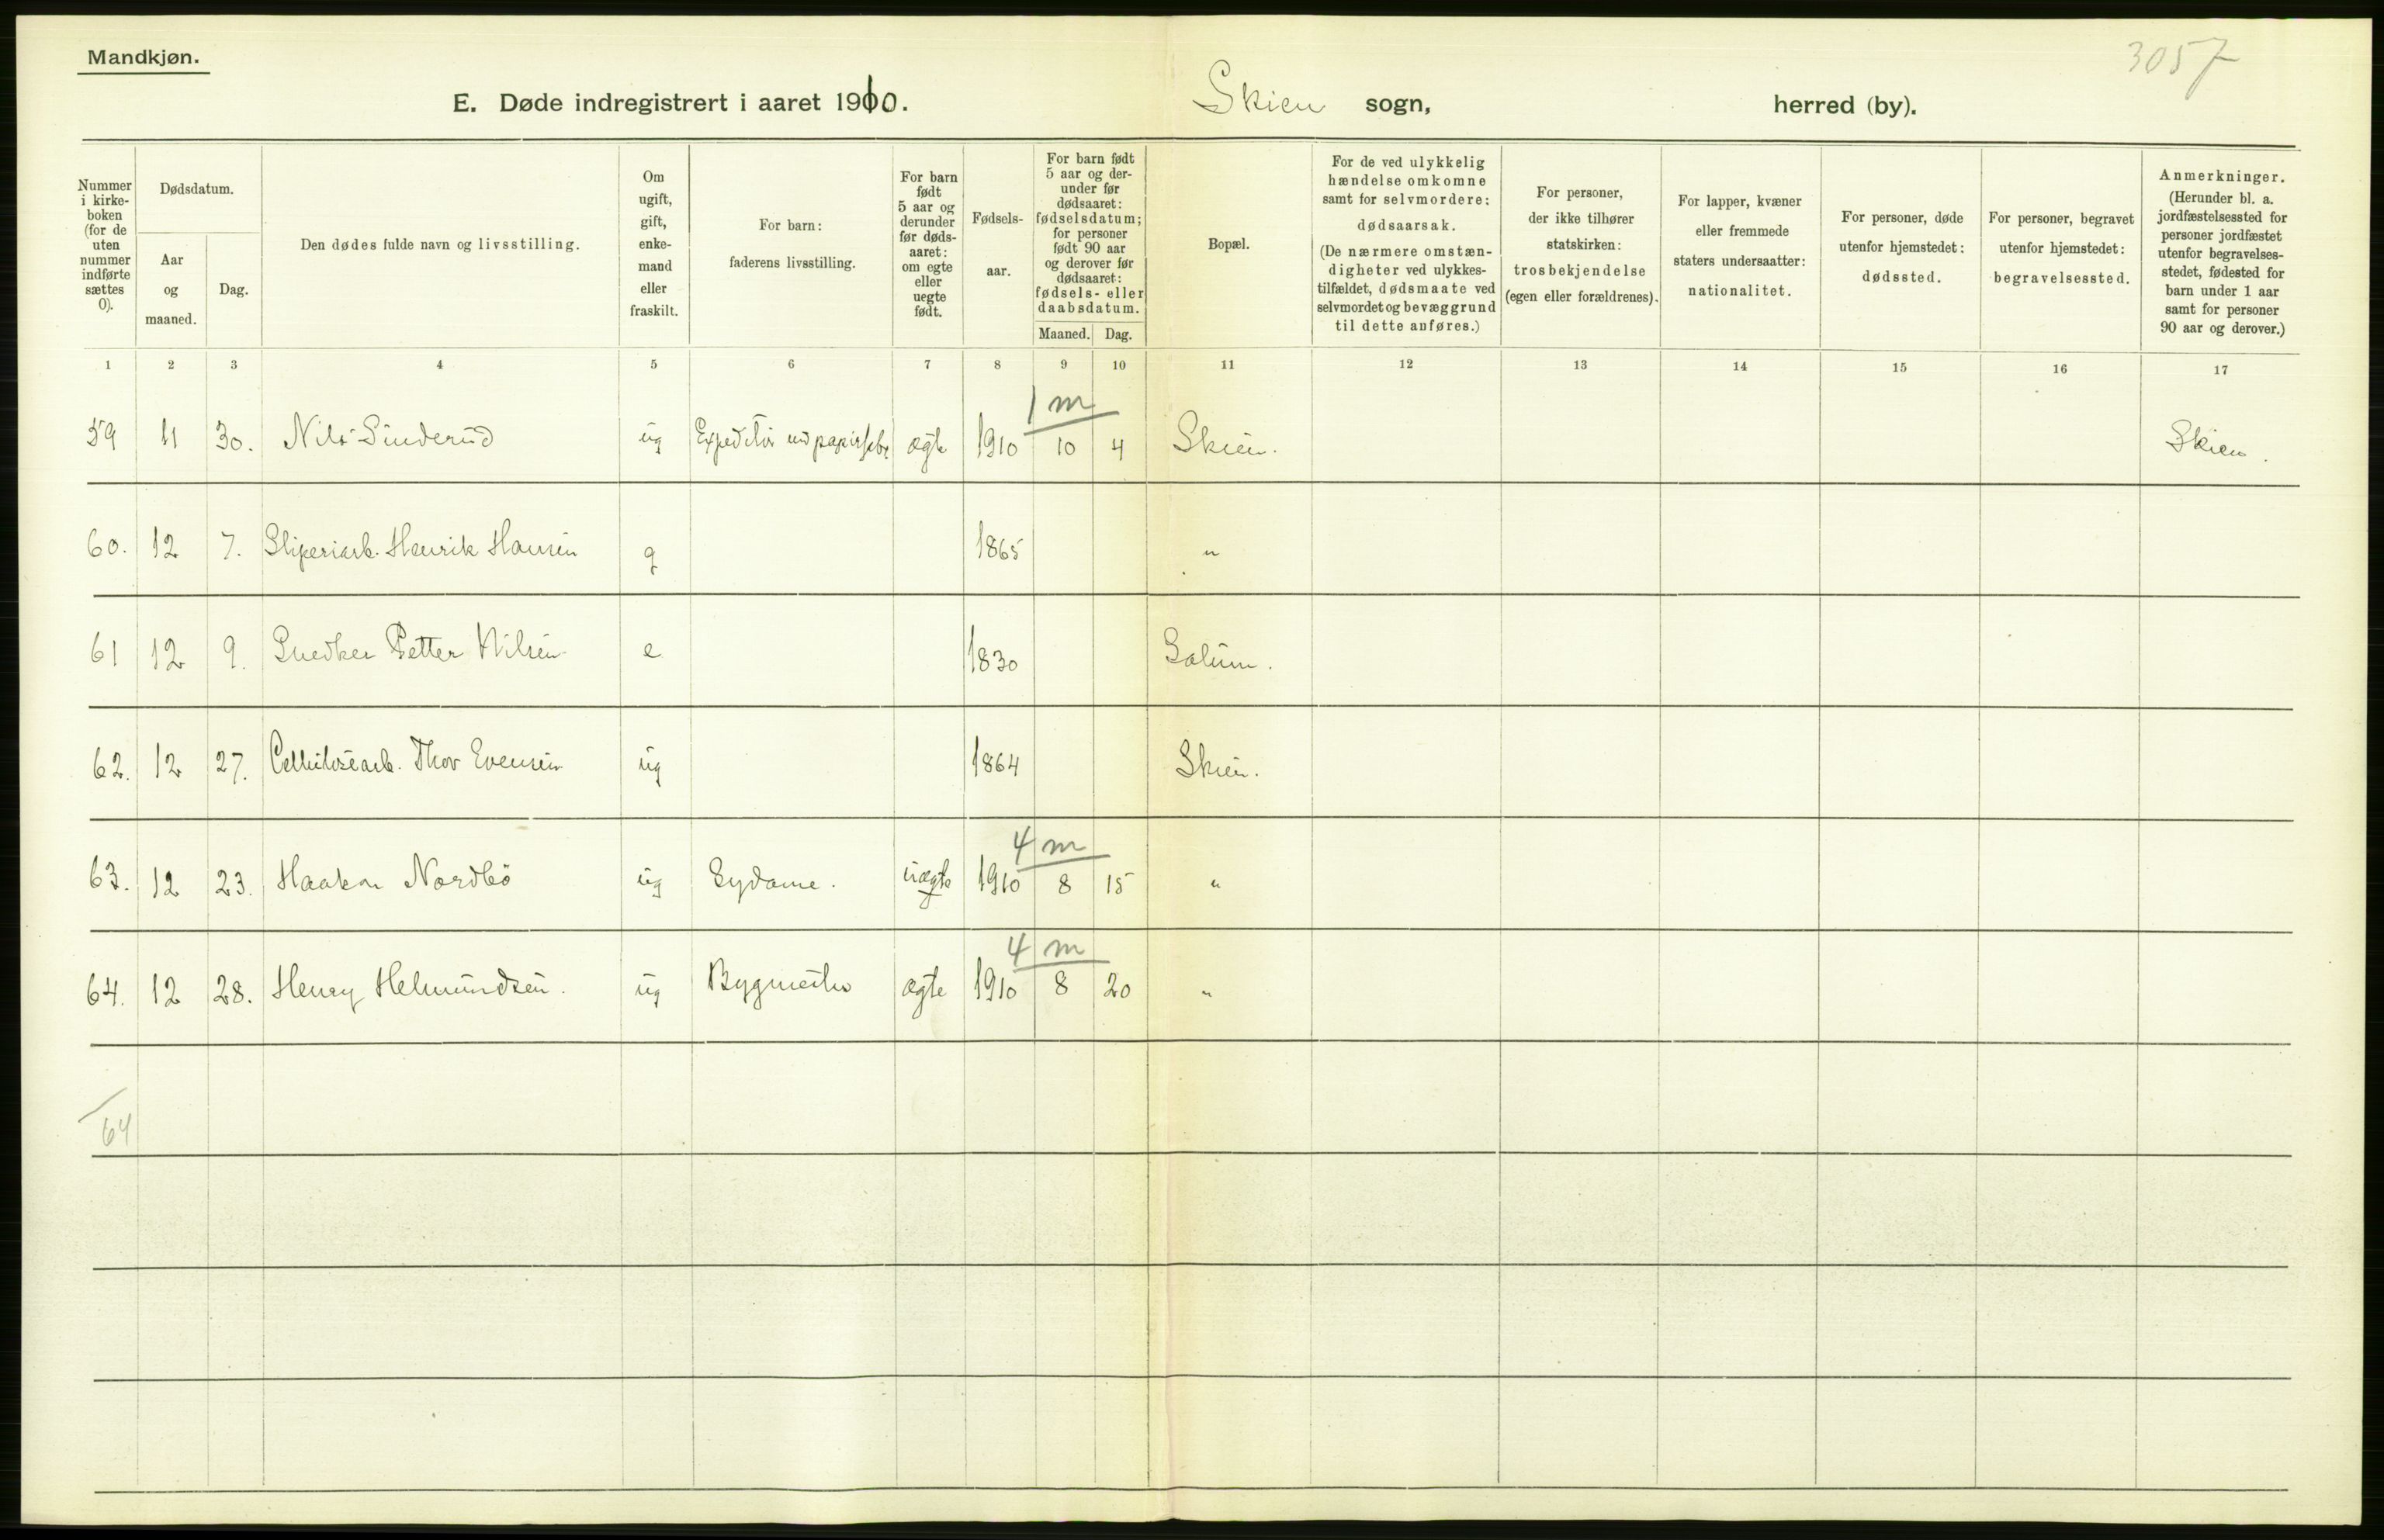 Mandkjøn.
3057
E. Døde indregistrert i aaret 1910.
Skien sogn, herred (by).
Nummer i kirke-boken (for de uten nummer indførte sættes 0).
Dødsdatum.
Aar og maaned.
Dag.
Den dødes fulde navn og livsstilling.
Om ugift, gift, enke-mand eller fraskilt.
For barn: faderens livsstilling.
For barn født 5 aar og derunder før døds-aaret: om egte eller uegte født.
Fødsels-aar.
For barn født 5 aar og der-under før dødsaaret: fødselsdatum; for personer født 90 aar og derover før dødsaaret: fødsels- eller daabsdatum.
Maaned. Dag.
Bopæl.
For de ved ulykkelig hændelse omkomne samt for selvmordere: dødsaarsak. (De nærmere omstæn-digheter ved ulykkes-tilfældet, dødsmaate ved selvmordet og bevæggrund til dette anføres.)
For personer, der ikke tilhører statskirken: trosbekjendelse (egen eller forældrenes).
For lapper, kvæner eller fremmede staters undersaatter: nationalitet.
For personer, døde utenfor hjemstedet: dødssted.
For personer, begravet utenfor hjemstedet: begravelsessted.
Anmerkninger. (Herunder bl. a. jordfæstelsessted for personer jordfæstet utenfor begravelses-stedet, fødested for barn under 1 aar samt for personer 90 aar og derover.)
1 2 3 4 5 6 7 8 9 10 11 12 13 14 15 16 17
1 m
59 11 30. Nils Sinderud ug Expeditør ved papirfabr ægte 1910 10 4 Skien. Skien.
60. 12 7. Sliperiarb. Henrik Hansen g 1865 "
61 12 9. Snedker Petter Nilsen e 1830 Solum.
62. 12 27. Cellulosearb. Thor Evensen ug 1864 Skien.
4 m
63. 12 23. Haakon Nordbö ug Sydame. uægte 1910 8 15 "
4 m
64. 12 28. Henry Helmundsen. ug Bygmester ægte 1910 8 20 "
64